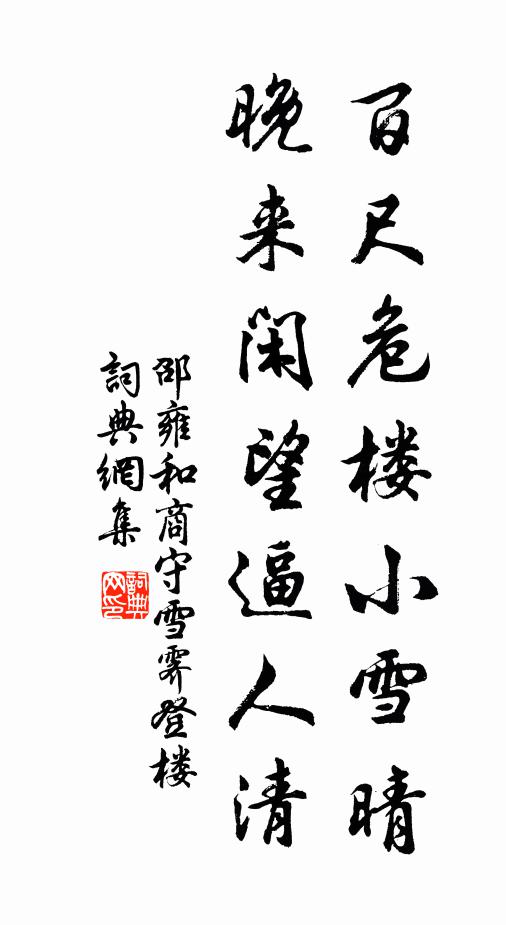 百尺危楼小雪晴
晚来闲望逼人清
邵雍和商守雪霁登楼
詞典網集
詞典网印